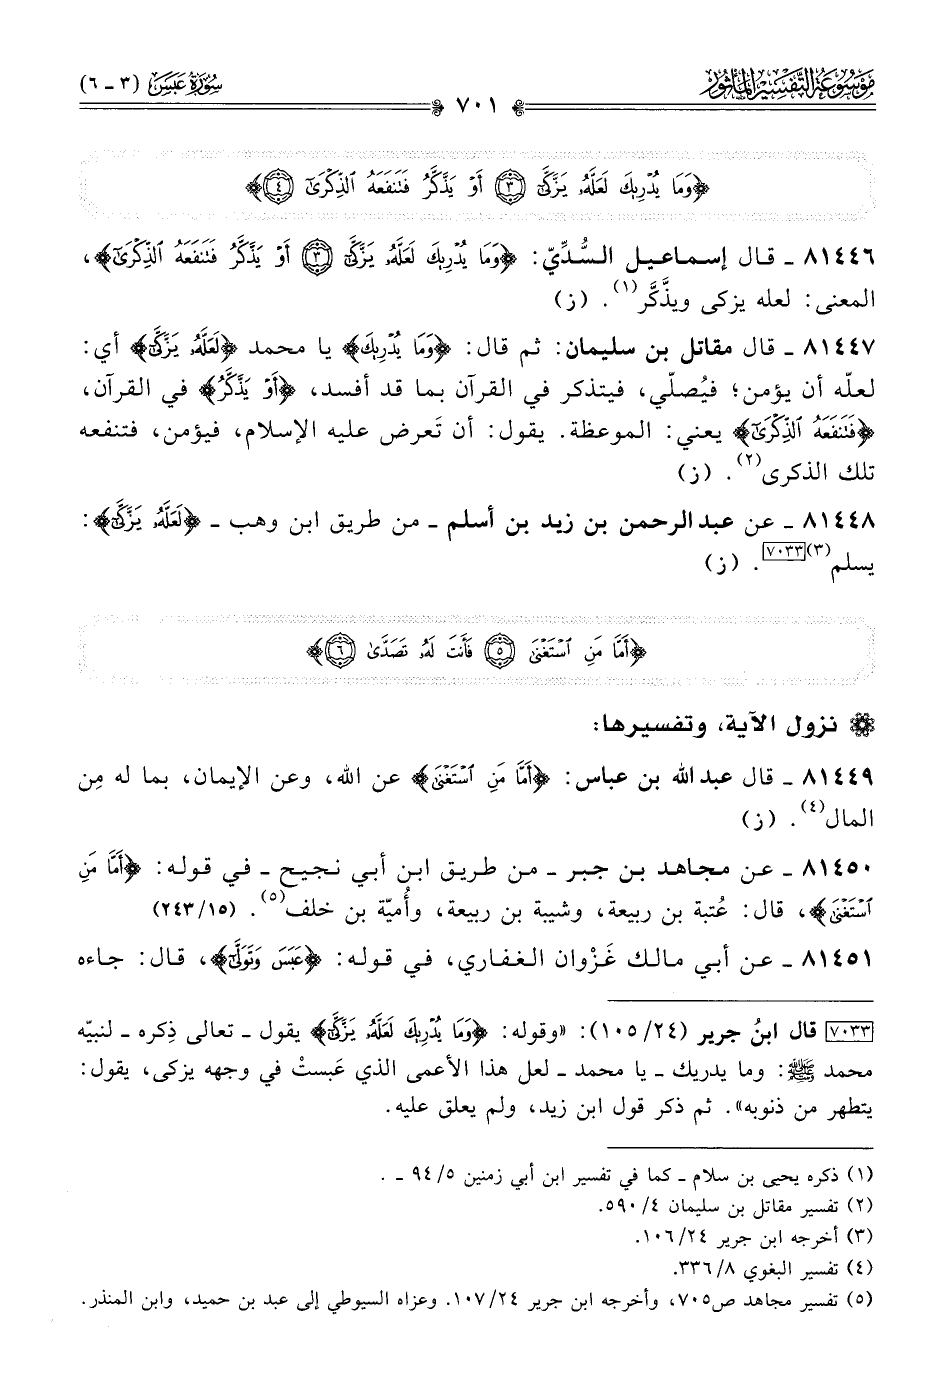 مَوْسُوعَة التَّفْسِيْر المَأْثُور
سُورَةُ عَبَسَ (٣ - ٦)
٧٠١
﴿وَمَا يُدْرِيكَ لَعَلَّهُۥ يَزَّكَّىٰٓ ٣ أَوْ يَذَّكَّرُ فَتَنفَعَهُ ٱلذِّكْرَىٰٓ ٤﴾
٨١٤٤٦ ـ قال إسماعيل السُّدِّيّ: ﴿وَمَا يُدْرِيكَ لَعَلَّهُۥ يَزَّكَّىٰٓ ٣ أَوْ يَذَّكَّرُ فَتَنفَعَهُ ٱلذِّكْرَىٰٓ﴾،
المعنى: لعله يزكى ويذَّكَّر(١). (ز)
٨١٤٤٧ ـ قال مقاتل بن سليمان: ثم قال: ﴿وَمَا يُدْرِيكَ﴾ يا محمد ﴿لَعَلَّهُۥ يَزَّكَّىٰٓ﴾ أي:
لعلّه أن يؤمن؛ فيُصلّي، فيتذكر في القرآن بما قد أفسد، ﴿أَوْ يَذَّكَّرُ﴾ في القرآن،
﴿فَتَنفَعَهُ ٱلذِّكْرَىٰٓ﴾ يعني: الموعظة. يقول: أن تَعرض عليه الإسلام، فيؤمن، فتنفعه
تلك الذكرى(٢). (ز)
٨١٤٤٨ ـ عن عبدالرحمن بن زيد بن أسلم ـ من طريق ابن وهب ـ ﴿لَعَلَّهُۥ يَزَّكَّىٰٓ﴾:
يسلم(٣)[٧٠٣٣]. (ز)
﴿أَمَّا مَنِ ٱسْتَغْنَىٰ ٥ فَأَنتَ لَهُۥ تَصَدَّىٰ ٦﴾
نزول الآية، وتفسيرها:
٨١٤٤٩ ـ قال عبدالله بن عباس: ﴿أَمَّا مَنِ ٱسْتَغْنَىٰ﴾ عن الله، وعن الإيمان، بما له مِن
المال(٤). (ز)
٨١٤٥٠ ـ عن مجاهد بن جبر ـ من طريق ابن أبي نجيح ـ في قوله: ﴿أَمَّا مَنِ
ٱسْتَغْنَىٰ﴾، قال: عُتبة بن ربيعة، وشيبة بن ربيعة، وأُميّة بن خلف(٥). (٢٤٣/١٥)
٨١٤٥١ ـ عن أبي مالك غَزْوان الغفاري، في قوله: ﴿عَبَسَ وَتَوَلَّىٰٓ﴾، قال: جاءه
[٧٠٣٣] قال ابنُ جرير (١٠٥/٢٤): «وقوله: ﴿وَمَا يُدْرِيكَ لَعَلَّهُۥ يَزَّكَّىٰٓ﴾ يقول ـ تعالى ذِكره ـ لنبيّه
محمد ﷺ: وما يدريك ـ يا محمد ـ لعل هذا الأعمى الذي عَبستْ في وجهه يزكى، يقول:
يتطهر من ذنوبه». ثم ذكر قول ابن زيد، ولم يعلق عليه.
(١) ذكره يحيى بن سلام ـ كما في تفسير ابن أبي زمنين ٩٤/٥ ـ .
(٢) تفسير مقاتل بن سليمان ٥٩٠/٤.
(٣) أخرجه ابن جرير ١٠٦/٢٤.
(٤) تفسير البغوي ٣٣٦/٨.
(٥) تفسير مجاهد ص٧٠٥، وأخرجه ابن جرير ١٠٧/٢٤. وعزاه السيوطي إلى عبد بن حميد، وابن المنذر.